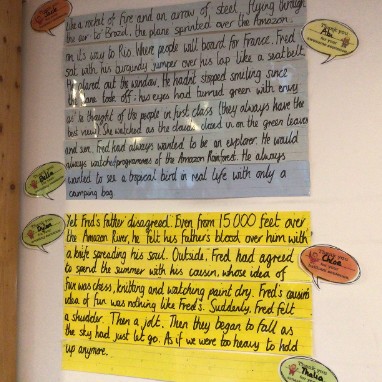 Like a rocket of fire and an arrow of steel, flying through
the air to Brazil, the plane sprinted over the Amazon.
on it's way to Rio where people will board for France. Fred
sat with his burgundy jumper over his lap like a seatbelt.
He glared out the window. He hadnt stopped smiling since
plane took off: two eyes had turned green with envy
we've thought of the people in first class (they always have the
best view). She watched as the clouds closed in on the green leaves
and sun. Fred had always wanted to be an explorer. He would
always watch programmes of the Amazon Rainforest. He always
wanted to see a tropical bird in real life with only a
camping bag.
Yet Fred's father disagreed. Even from 15000 feet over
the Amazon River, he felt his father's blood over him with
a knife spreading his soul. Outside, Fred had agreed
to spend the summer with his cousin, whose idea of
fun was chess, knitting and watching paint dry. Fred's cousin's
idea of fun was nothing like Fred's. Suddenly, Fred felt
a shudder. Then a jolt. Then they began to fall as
the sky had just let go. As if we were too heavy to hold
up anymore.
Thank you
Chloe
Thank you
Thalia